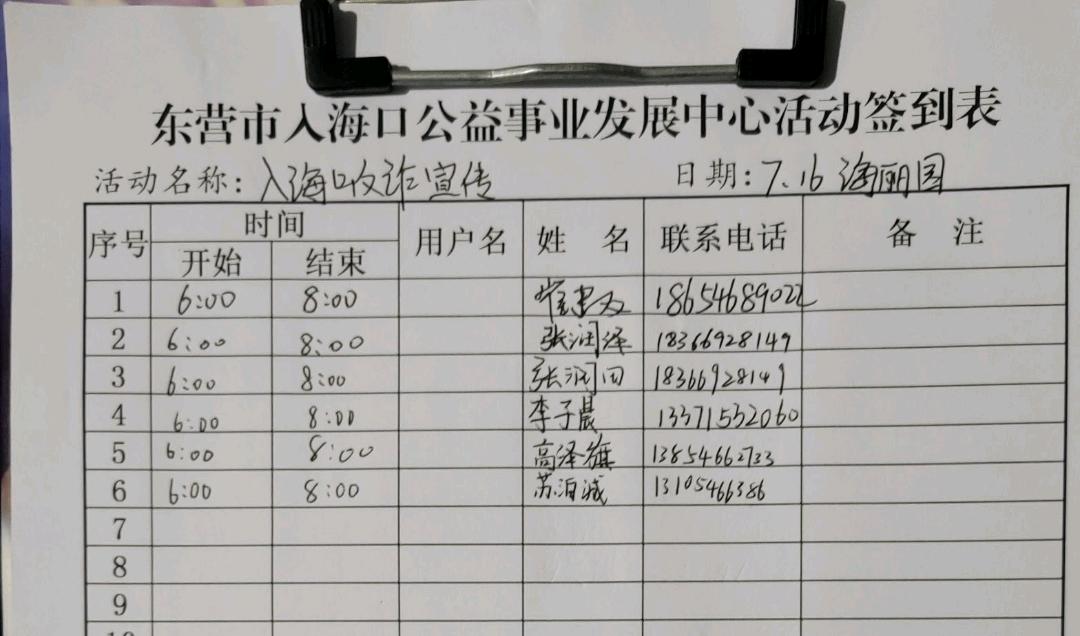 东营市入海口公益事业发展中心活动签到表
活动名称：入海口反诈宣传 日期：7.16 海丽园
序号 时间 用户名 姓 名 联系电话 备 注
开始 结束
1 6:00 8:00 18654689022
2 6:00 8:00 张润泽 18366928149
3 6:00 8:00 张润田 18366928149
4 6:00 8:00 李子晨 13371532060
5 6:00 8:00 高泽旗 13854662733
6 6:00 8:00 苏泊诚 13105466386
7
8
9